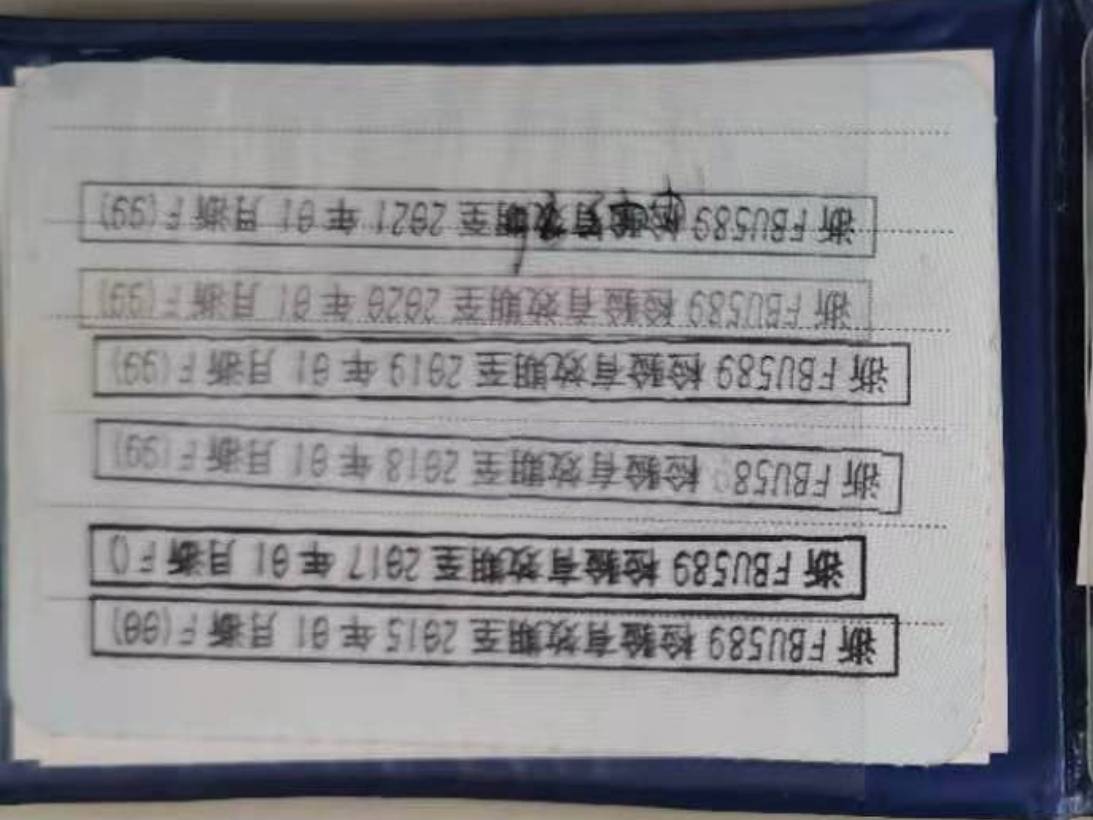 浙FBU589 检验有效期至2015年01月浙F(00)
浙FBU589 检验有效期至2017年01月浙F()
浙FBU58 检验有效期至2018年01月浙F(99)
浙FBU589 检验有效期至2019年01月浙F(99)
浙FBU589 检验有效期至2020年01月浙F(99)
浙FBU589 检验有效期至2021年01月浙F(99)